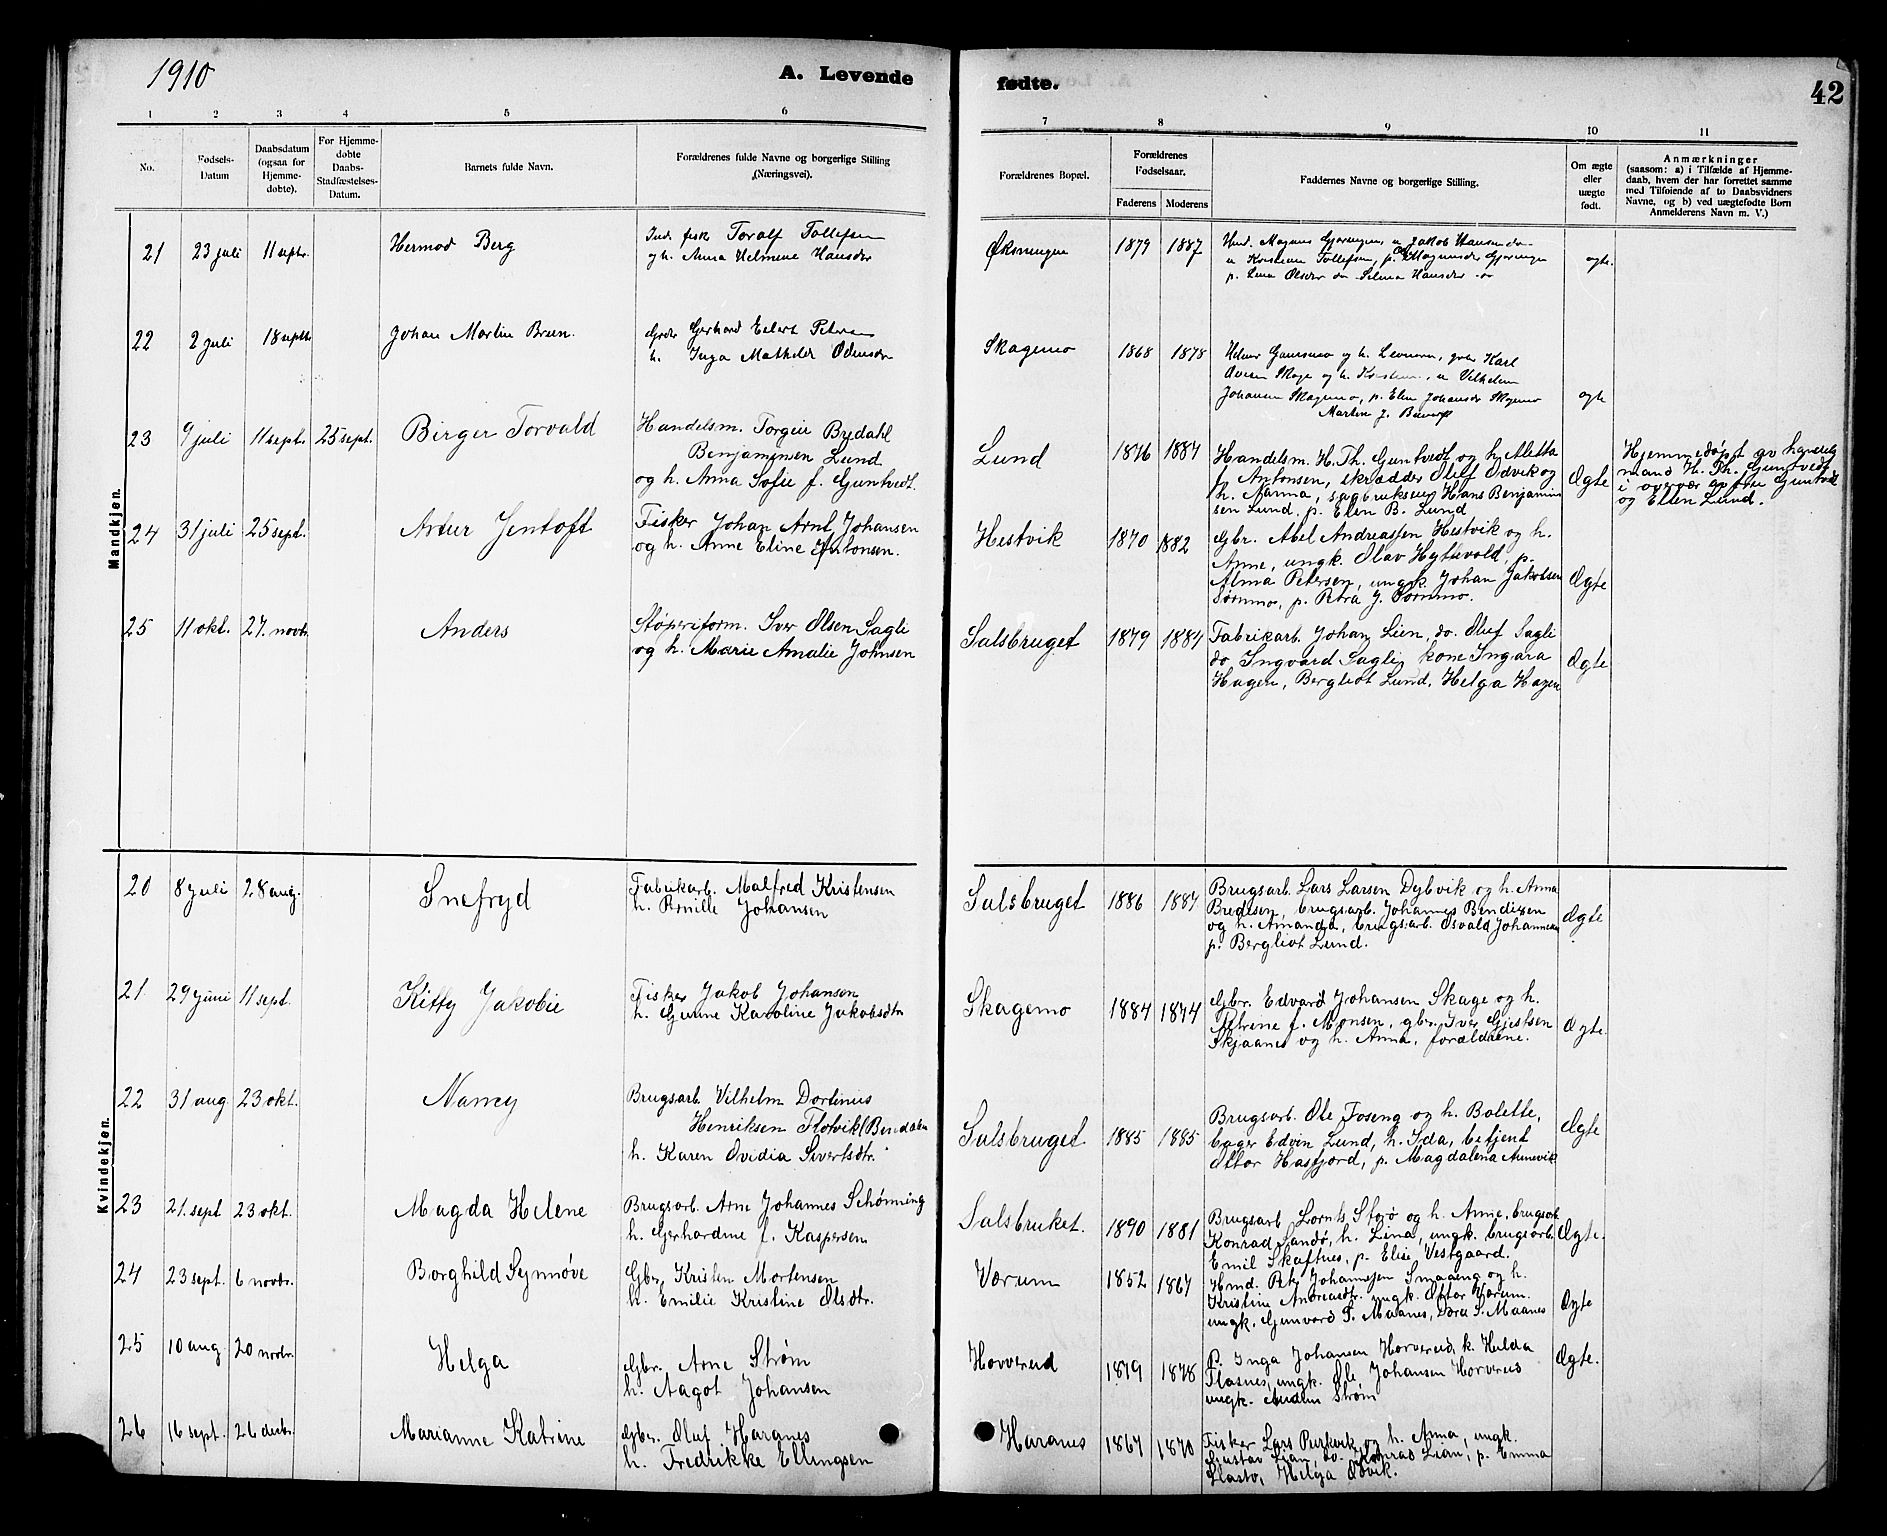 1910
A. Levende
fødte.
42
1 2 3 4 5 6
7 8 9 10 11
No.
Fødsels-
Datum
Daabsdatum
(ogsaa for
Hjemme-
døbte).
For Hjemme-
døbte
Daabs-
Stadfæstelses-
Datum.
Barnets fulde Navn.
Forældrenes fulde Navne og borgerlige Stilling
(Næringsvei).
Forældrenes Bopæl.
Forældrenes
Fødselsaar.
Faderens Moderens
Faddernes Navne og borgerlige Stilling.
Om ægte
eller
uægte
født.
Anmærkninger
(saasom: a) i Tilfælde af Hjemme-
daab, hvem der har forrettet samme
med Tilføiende af to Daabsvidners
Navne, og b) ved uægtefødte Børn
Anmelderens Navn m. V.)
Mandkjøn.
21 23 juli 11 septr. Hermod Berg
Ind. fisk Toralf Tollefsen
og h. Anna Helmine Hansdtr
Øksningen 1879 1887
Hmd. Magnus Gjæringen, u Jakob Hansen do
u Kristian Tollefsen, p. Magnusdtr Gjæringen
p. Lina Olsdtr do Selma Hansdtr
ægte.
22 2 juli 18 septb Johan Martin Brun.
Grdr Gerhard Edert Petersen
h. Inga Mathilde Odinsdr
Skagemo 1868 1878
og h. Karl
Skage og h. u Vilhelm
Johansen Skagemo, p. Elen Johansdr Skagemo
Martin J.
ægte
23 9 juli 11 sept. 25 sept. Birger Torvald
Handelsm. Torgeir Bydahl
Benjaminsen Lund
og h. Anna Sofie f. Guntvedt.
Lund 1876 1887
Handelsm. H. Th. Guntvedt og h. Aletta
f. Antonsen, skrædder Oluf Odvik og
h. Nanna, sagbrukseier Hans Benjamin
sen Lund, p. Elen B. Lund
Ægte
Hjemmedøpt av handels
mand H. Th. Guntvedt
i overvær av fru Guntvedt
og Ellen Lund.
24 31 juli 25 sept. Artur Jentoft
Fisker Johan Arnt Johansen
og h. Anne Eline Antonsen.
Hestvik 1870 1882
Gbr. Abel Andreassen Hestvik og h.
Anne, ungk. Olav Hyttevold, p.
Alma Petersen, ungk. Johan Jakobsen
Sørmmo, p. Petra J. Sørmmo.
Ægte
25 11 okt. 27. novbr. Anders
Støperiform. Iver Olsen Sagli
og h. Marie Amalie Johnsen
Salsbruget 1879 1884
Fabrikarb. Johan Lien, do. Oluf Sagli
do Ingvard Sagli, kone Ingara
Hagen, Bergliot Lund, Helga Hagen
Ægte
Kvindekjøn.
20 8 juli 28 aug. Snefryd
Fabrikarb. Malfred Kristensen
h. Pernille Johansen
Salsbruget 1886 1887
Brugsarb. Lars Larsen Dybvik og h. Anna
Bredesen, brugsarb. Johannes Bendixen
og h. Amanda, brugsarb. Osvald Johannesen
p. Bergliot Lund.
Ægte
21. 29 juni 11 sept. Kitty Jakobie
Fisker Jakob Johansen
h. Gunne Karoline Jakobsdtr
Skagemo 1884 1874
Gbr. Edvard Johansen Skage og h.
Petrine f. Monsen, gbr. Iver Gjertsen
Skjaanes og h. Anna, forældrene.
Ægte.
22 31 aug 23 okt. Nancy
Brugsarb. Vilhelm Dortinus
Henriksen Flotvik (Bindalen
h. Karen Ovidia Sivertsdtr.
Salsbruget 1885 1885
Brugsarb. Ole Foseng og h. Bolette,
bager Edvin Lund, h. Ida, betjent
Ottar Hasfjord, p. Magdalena Aunevik
Ægte
23 21. sept 23 okt. Magda Helene
Brugsarb. Arne Johannes Schønning
h. Gerhardine f. Kaspersen
Salsbruket. 1890 1881
Brugsarb Lornts Storø og h. Anne, brugsarb.
Konrad Sandø, h. Lina, ungk. brugsarb.
Emil Skaftnes, p. Elise Vestgaard.
Ægte.
24 23 sept. 6 novbr. Borghild Synnøve
Gbr. Kristen Mortensen
h. Emilie Kristine Olsdtr.
Værum 1852 1867
Hmd. Petr. Johannesen Smaaeng og h.
Kristine Andreasdtr. ungk. Ottar Værum.
ungk. Gunvard S. Maanes, Dora S. Maanes
Ægte
25 10 aug 20 novbr. Helga
Gbr. Arne Strøm
h. Aagot Johansen
Hovverud 1879 1878
P. Inga Johansen Horverud, k. Hilda
Flasnes, ungk. Ole Johansen Horverud
ungk. Audun Strøm
Ægte.
26 16 sept. 26 decbr. Marianne Katrine
Gbr. Oluf Haranes
h. Fredrikke Ellingsen
Haranes 1867 1870
Fisker Lars Purkvik og h. Anna, ungk.
Gustav Lian, do. Konrad Lian, p. Emma
Flasto, Helga Odvik.